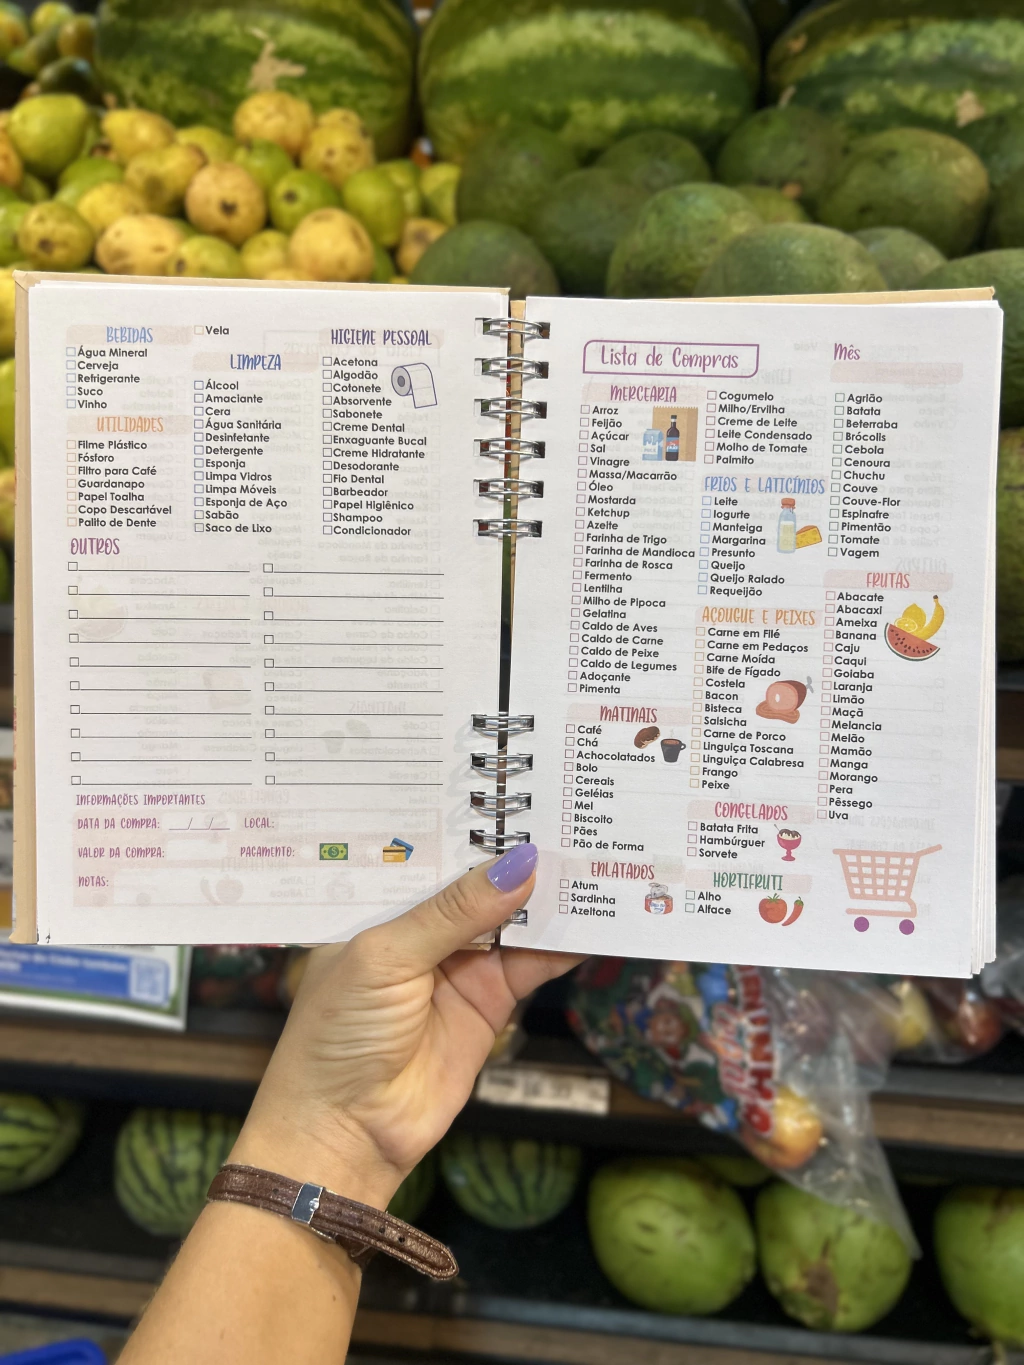 BEBIDAS
Água Mineral
Cerveja
Refrigerante
Suco
Vinho
UTILIDADES
Filme Plástico
Fósforo
Filtro para Café
Guardanapo
Papel Toalha
Copo Descartável
Palito de Dente
Vela
LIMPEZA
Álcool
Amaciante
Cera
Água Sanitária
Desinfetante
Detergente
Esponja
Limpa Vidros
Limpa Móveis
Esponja de Aço
Sabão
Saco de Lixo
HIGIENE PESSOAL
Acetona
Algodão
Cotonete
Absorvente
Sabonete
Creme Dental
Enxaguante Bucal
Creme Hidratante
Desodorante
Fio Dental
Barbeador
Papel Higiênico
Shampoo
Condicionador
OUTROS
INFORMAÇÕES IMPORTANTES
DATA DA COMPRA: __/__/__ LOCAL:
VALOR DA COMPRA: PAGAMENTO:
NOTAS:
Lista de Compras
Mês
MERCEARIA
Arroz
Feijão
Açúcar
Sal
Vinagre
Massa/Macarrão
Óleo
Mostarda
Ketchup
Azeite
Farinha de Trigo
Farinha de Mandioca
Farinha de Rosca
Fermento
Lentilha
Milho de Pipoca
Gelatina
Caldo de Aves
Caldo de Carne
Caldo de Peixe
Caldo de Legumes
Adoçante
Pimenta
MATINAIS
Café
Chá
Achocolatados
Bolo
Cereais
Geléias
Mel
Biscoito
Pães
Pão de Forma
ENLATADOS
Atum
Sardinha
Azeitona
Cogumelo
Milho/Ervilha
Creme de Leite
Leite Condensado
Molho de Tomate
Palmito
FRIOS E LATICÍNIOS
Leite
Iogurte
Manteiga
Margarina
Presunto
Queijo
Queijo Ralado
Requeijão
AÇOUGUE E PEIXES
Carne em Filé
Carne em Pedaços
Carne Moída
Bife de Fígado
Costela
Bacon
Bisteca
Salsicha
Carne de Porco
Linguiça Toscana
Linguiça Calabresa
Frango
Peixe
CONGELADOS
Batata Frita
Hambúrguer
Sorvete
HORTIFRUTI
Alho
Alface
Agrião
Batata
Beterraba
Brócolis
Cebola
Cenoura
Chuchu
Couve
Couve-Flor
Espinafre
Pimentão
Tomate
Vagem
FRUTAS
Abacate
Abacaxi
Ameixa
Banana
Caju
Caqui
Goiaba
Laranja
Limão
Maçã
Melancia
Melão
Mamão
Manga
Morango
Pera
Pêssego
Uva